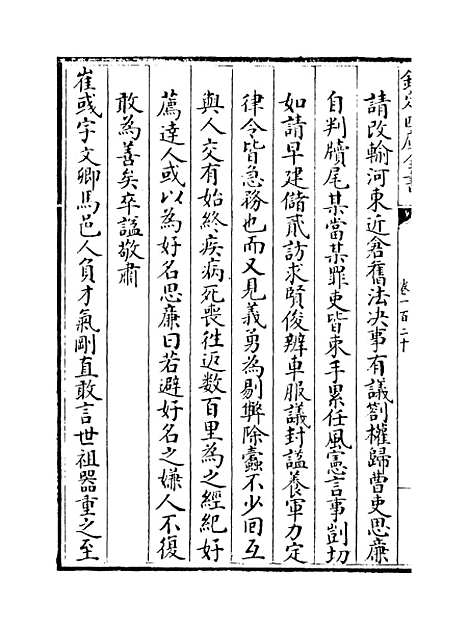 欽定四庫全書
卷一百二十
請改輸河東近倉舊法決事有議劄權歸曹吏思廉
自判牘尾某當某罪吏皆束手累任風憲言事剴切
如請早建儲貳訪求賢俊辨車服議封謚養軍力定
律令皆急務也而又見義勇為剔弊除蠹不少回互
與人交有始終疾病死喪徃返数百里為之經紀好
薦達人或以為好名思廉曰若避好名之嫌人不復
敢為善矣卒謚敬肅
崔彧字文卿馬邑人負才氣剛直敢言世祖器重之至